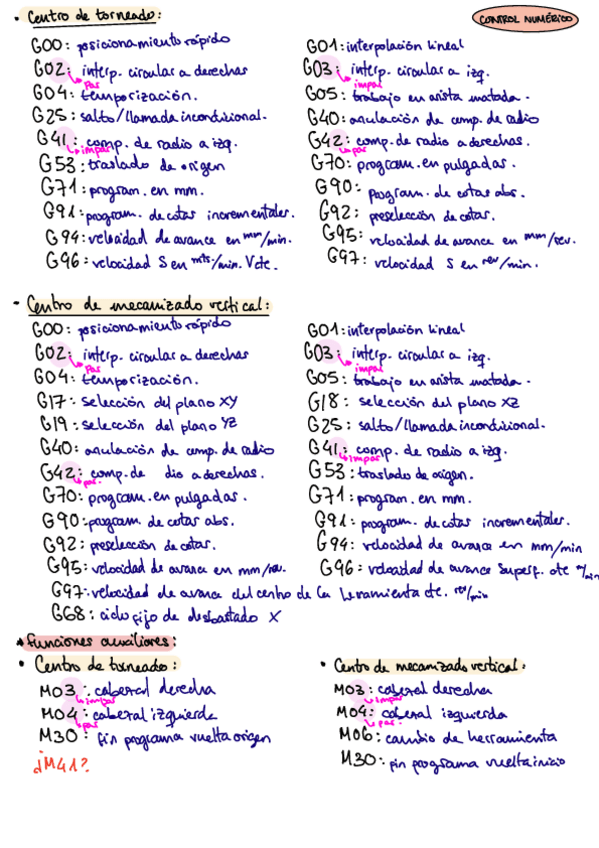 • Centro de torneado:
CONTROL NUMÉRICO
G00: posicionamiento rápido
G01: interpolación lineal
G02: interp. circular a derechas
par
G03: interp. circular a izq.
impar
G04: temporización.
G05: trabajo en arista matada.
G25: salto/llamada incondicional.
G40: anulación de comp. de radio
G41: comp. de radio a izq.
impar
G42: comp. de radio a derechas.
par
G53: traslado de origen
G70: program. en pulgadas.
G71: program. en mm.
G90: program. de cotas abs.
G91: program. de cotas incrementales.
G92: preselección de cotas.
G94: velocidad de avance en mm/min.
G95: velocidad de avance en mm/rev.
G96: velocidad S en mts/min. Vcte.
G97: velocidad S en rev/min.
- Centro de mecanizado vertical:
G00: posicionamiento rápido
G01: interpolación lineal
G02: interp. circular a derechas
par
G03: interp. circular a izq.
impar
G04: temporización.
G05: trabajo en arista matada.
G17: selección del plano XY
G18: selección del plano XZ
G19: selección del plano YZ
G25: salto/llamada incondicional.
G40: anulación de comp. de radio
G41: comp. de radio a izq.
impar
G42: comp. de dio a derechas.
par
G53: traslado de origen.
G70: program. en pulgadas.
G71: program. en mm.
G90: program. de cotas abs.
G91: program. de cotas incrementales.
G92: preselección de cotas.
G94: velocidad de avance en mm/min
G95: velocidad de avance en mm/rev.
G96: velocidad de avance superf. cte m/min
G97: velocidad de avance del centro de la herramienta cte. rev/min
G68: ciclo fijo de desbastado X
* Funciones auxiliares:
• Centro de torneado:
• Centro de mecanizado vertical:
M03: cabezal derecha
impar
M03: cabezal derecha
impar
M04: cabezal izquierda
par
M04: cabezal izquierda
par
M30: fin programa vuelta origen
M06: cambio de herramienta
¿M41?
M30: fin programa vuelta inicio